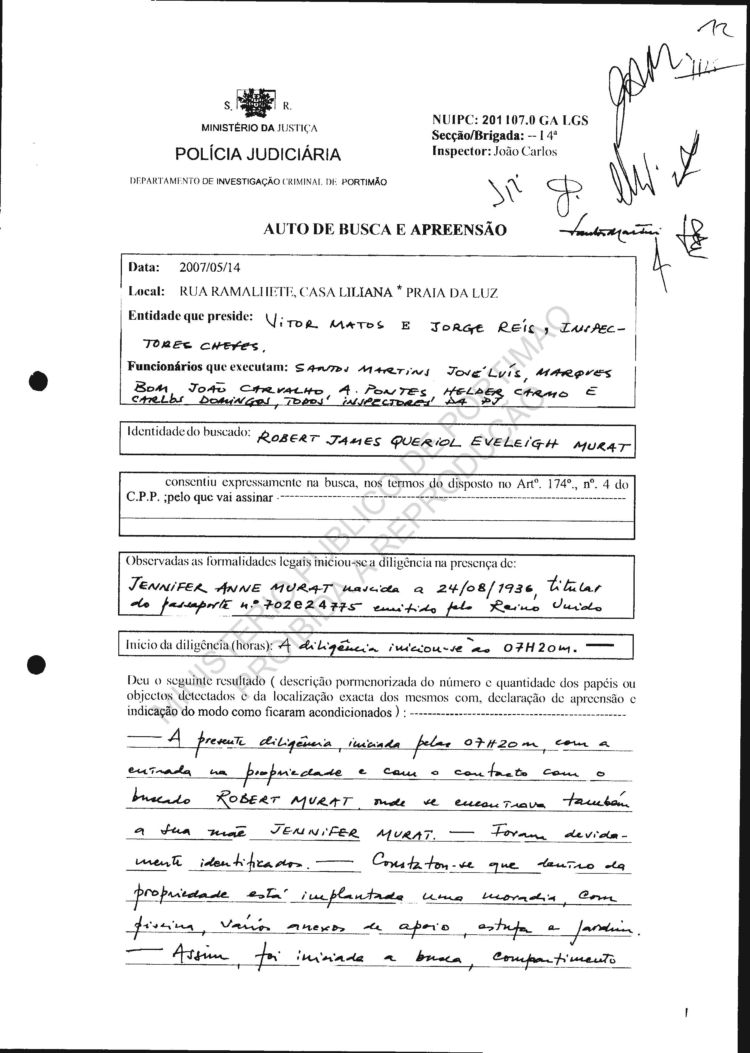 12
S. R.
MINISTÉRIO DA JUSTIÇA
POLÍCIA JUDICIÁRIA
DEPARTAMENTO DE INVESTIGAÇÃO CRIMINAL DE PORTIMÃO
NUIPC: 201107.0 GA LGS
Secção/Brigada: -- I 4ª
Inspector: João Carlos
AUTO DE BUSCA E APREENSÃO
Santos Martins
Data: 2007/05/14
Local: RUA RAMALHETE, CASA LILIANA * PRAIA DA LUZ
Entidade que preside: VITOR MATOS E JORGE REIS, INSPEC-
TORES CHEFES.
Funcionários que executam: SANTOS MARTINS JOSÉ LUÍS, MARQUES
BOM, JOÃO CARVALHO, A. PONTES, HELDER CARMO E
CARLOS DOMINGOS, TODOS INSPECTORES DA PJ
Identidade do buscado: ROBERT JAMES QUERIOL EVELEIGH MURAT
consentiu expressamente na busca, nos termos do disposto no Artº. 174º., nº. 4 do
C.P.P. ;pelo que vai assinar -
Observadas as formalidades legais iniciou-se a diligência na presença de:
JENNIFER ANNE MURAT nascida a 24/08/1936, titular
do passaporte n.º 702024775 emitido pelo Reino Unido
Início da diligência (horas): A diligência iniciou-se às 07H20m. —
Deu o seguinte resultado ( descrição pormenorizada do número e quantidade dos papéis ou
objectos detectados e da localização exacta dos mesmos com, declaração de apreensão e
indicação do modo como ficaram acondicionados ) : -
— A presente diligência, iniciada pelas 07H20m, com a
entrada na propriedade e com o contacto com o
buscado ROBERT MURAT, onde se encontrava também
a sua mãe JENNIFER MURAT. — Foram devida-
mente identificados. — Constatou-se que dentro da
propriedade está implantada uma moradia, com
piscina, vários anexos de apoio, estufa e jardim.
— Assim, foi iniciada a busca, compartimento
MINISTÉRIO PÚBLICO DE PORTIMÃO
PROIBIDA A REPRODUÇÃO
1